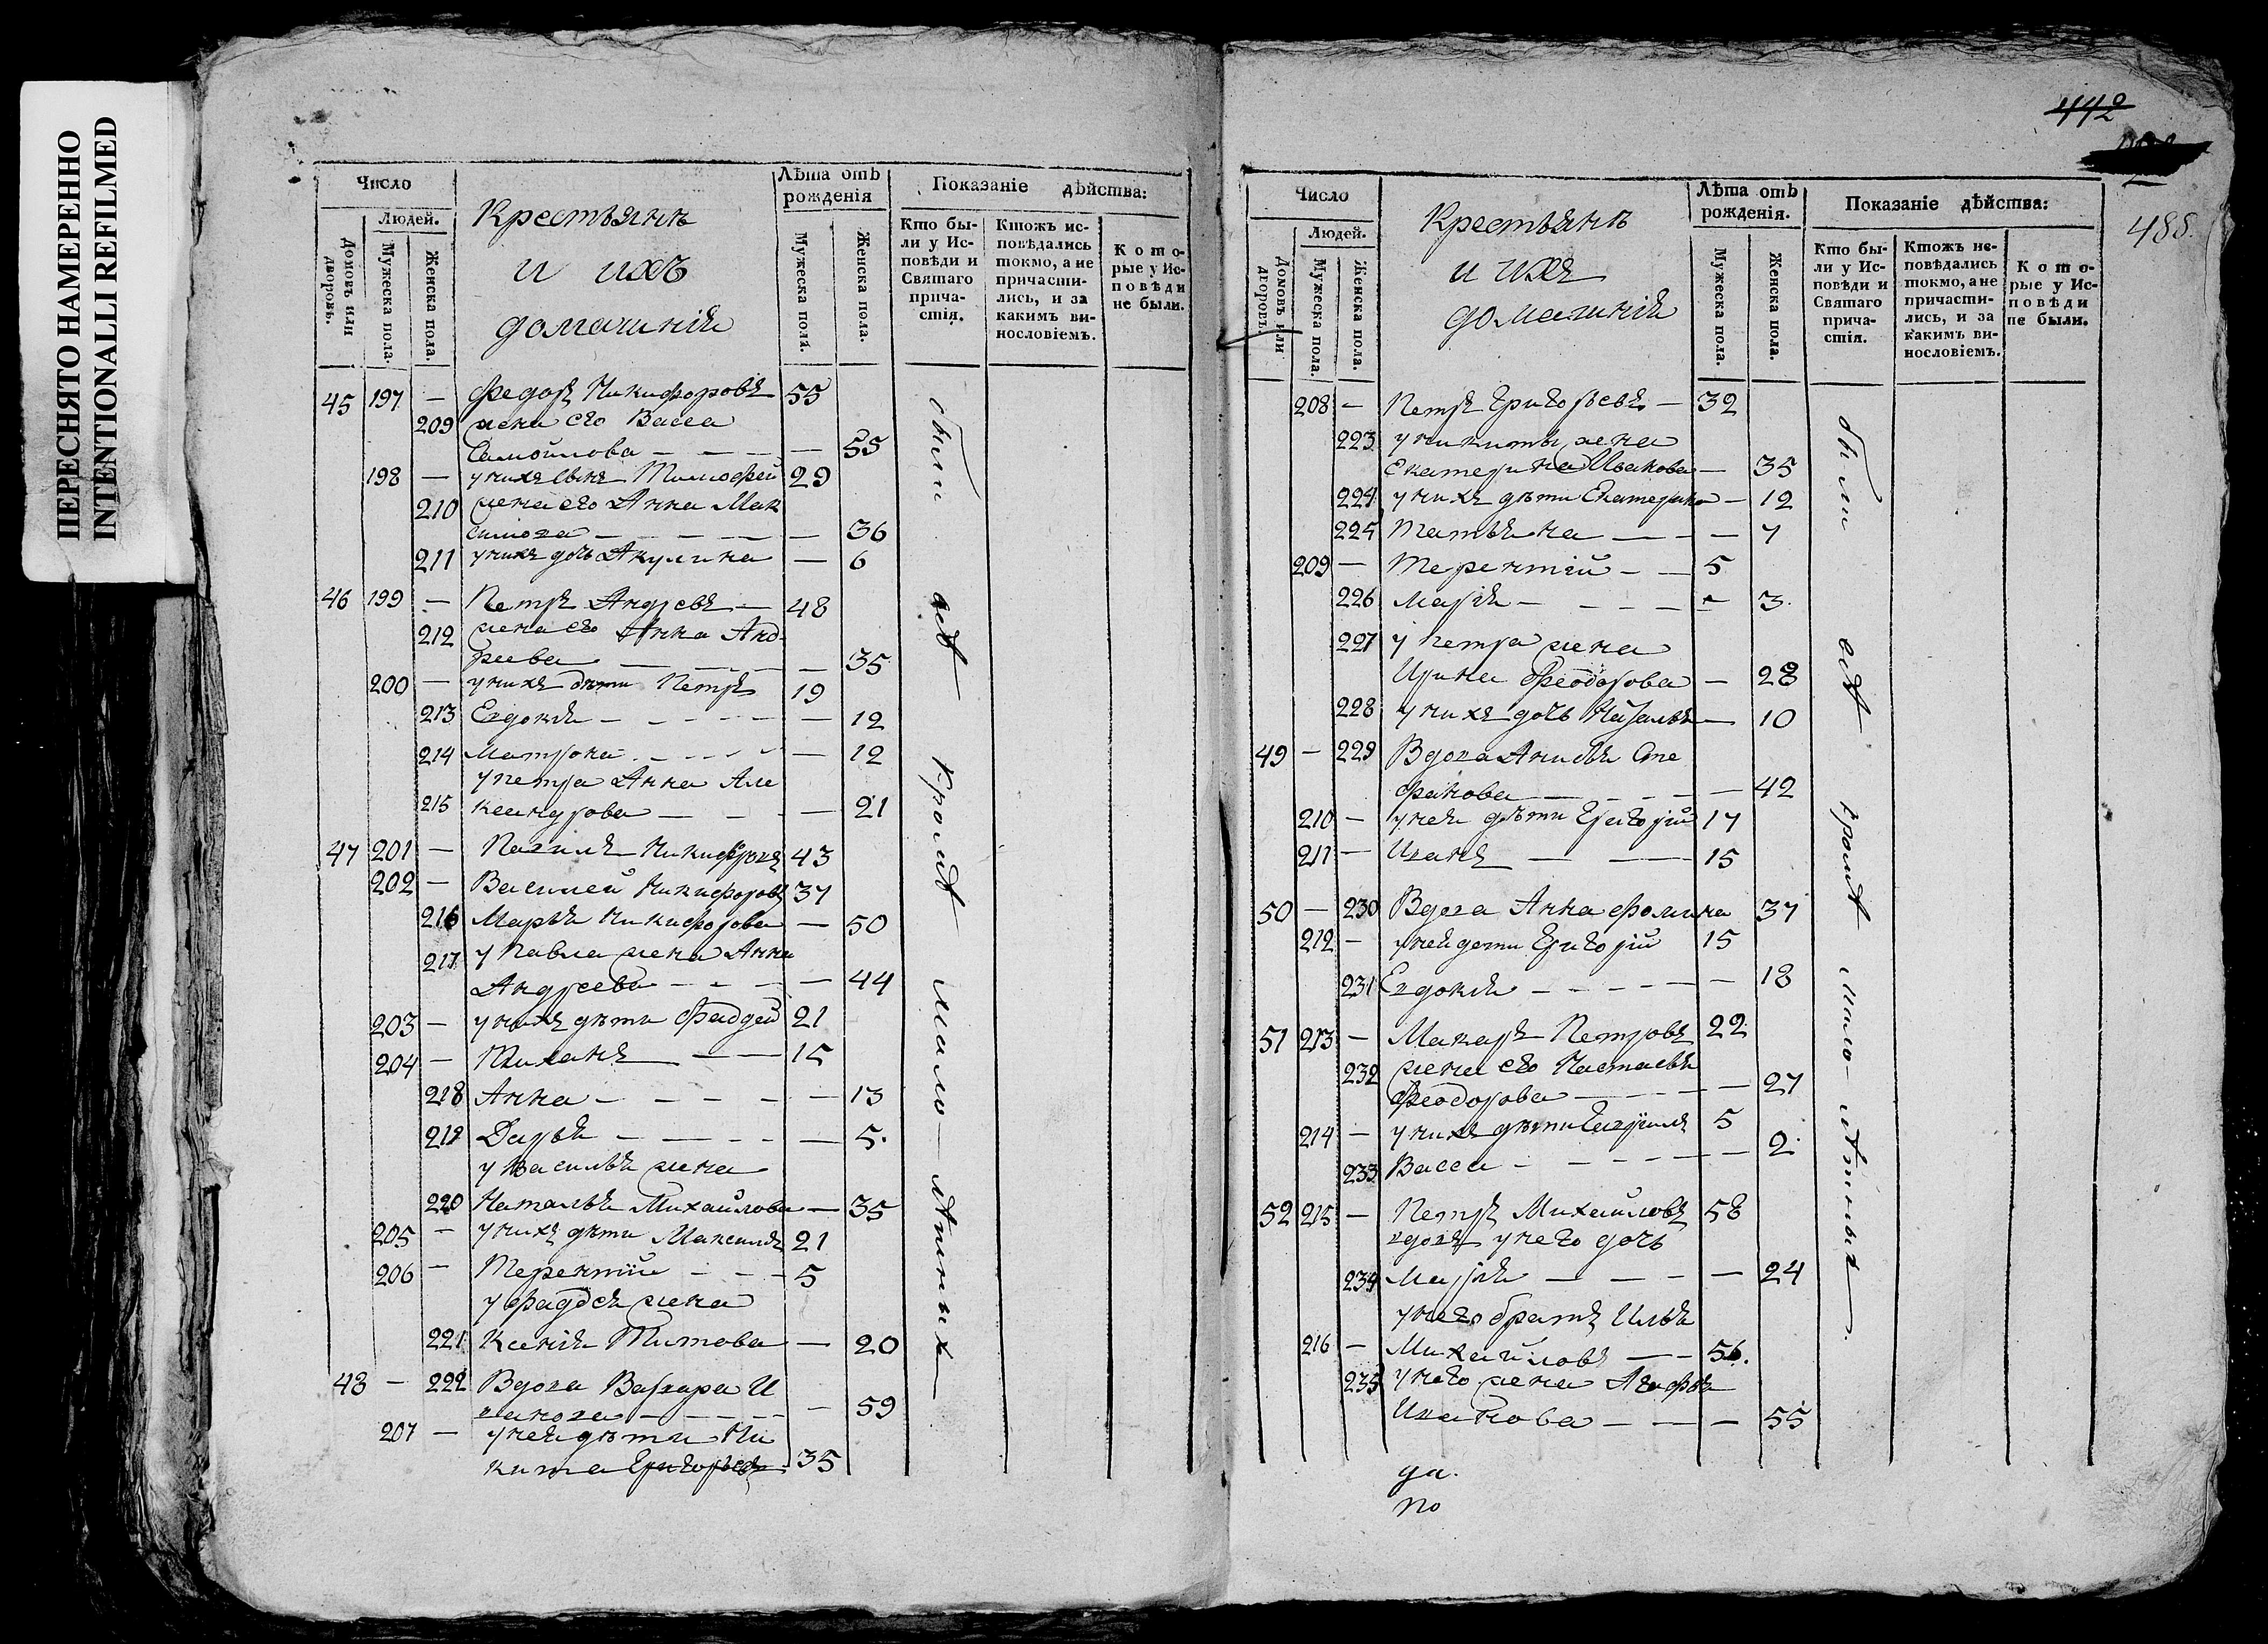 ПЕРЕСНЯТО НАМЕРЕННО
INTENTIONALLI REFILMED
Число
Людей.
Домовъ или дворовъ.
Мужеска пола.
Женска пола.
Крестьянъ
и ихъ
домашнія
Лѣта отъ рожденія
Мужеска пола.
Женска пола.
Показаніе дѣйства:
Кто были у Исповѣди и Святаго причастія.
Ктожъ исповѣдались токмо, а не причастились, и за какимъ винословіемъ.
Которые у Исповѣди не были.
45 197 — Федоръ Никифоровъ 55
209 жена его Васса
Самойлова — — — — 55
198 — у нихъ сынъ Тимофей 29
210 жена его Анна Мак
симова — — — — 36
211 у нихъ дочь Акулина — 6
46 199 — Петръ Андреевъ — 48
212 жена его Анна Анд
реева — — — — 35
200 — у нихъ дѣти Петръ 19
213 Евдокія — — — — 12
214 Матрона — — — — 12
у петра Анна Але
215 ксандрова — — — 21
47 201 — Павилъ Никифоровъ 43
202 — Василей Никифоровъ 37
216 Марья Никифорова — 50
217 у Павла жена Анна
Андреева — — — — 44
203 — у нихъ дѣти Фаддей 21
204 — Тиханъ — — 15
218 Анна — — — — — 13
219 Дарья — — — — — 5.
у Василья жена
220 Наталья Михайлова — 35
205 — у нихъ дѣти Максимъ 21
206 — Терентий — — — 5
у Фаддея жена
221 Ксенія Титова — 20
48 — 222 Вдова Варвара И
ванова — — — — 59
207 — у ней дѣти Ни
кита Григорьевъ 35
были всѣ кромѣ мало-лѣтныхъ
442
488.
Число
Людей.
Домовъ или дворовъ.
Мужеска пола.
Женска пола.
Крестьянъ
и ихъ
домашнія
Лѣта отъ рожденія.
Мужеска пола.
Женска пола.
Показаніе дѣйства:
Кто были у Исповѣди и Святаго причастія.
Ктожъ исповѣдались токмо, а не причастились, и за какимъ винословіемъ.
Которые у Исповѣди не были.
208 — Петръ Григорьевъ — 32
223 у никиты жена
Екатерина Ивакова — 35
224 у нихъ дѣти Екатерина — 12
225 Татьяна — — — 7
209 — Терентій — — 5
226 Марія — — — — 3.
227 у петра жена
Ирина Феодорова — 28
228 у нихъ дочь Наталья — 10
49 — 229 Вдова Анисья Сте
фанова — — — — 42
210 — у ней дѣти Григорій 17
211 — Иванъ — — 15
50 — 230 Вдова Анна Фомина 37
212 — у ней дети Григорій 15
231 Евдокія — — — — — 18
51 213 — Макаръ Петровъ 22
232 жена его Настасья
Феодорова — — — — 27
214 — у нихъ дѣти Гаврилъ 5
233 Васса — — — — — 2.
52 215 — Петръ Михайловъ 58
вдовъ у него дочь
234 Марія — — — — 24
у него братъ Илья
216 — Михайловъ — — 56.
235 у него жена Агафья
Иванова — — — 55
были всѣ кромѣ мало-лѣтныхъ